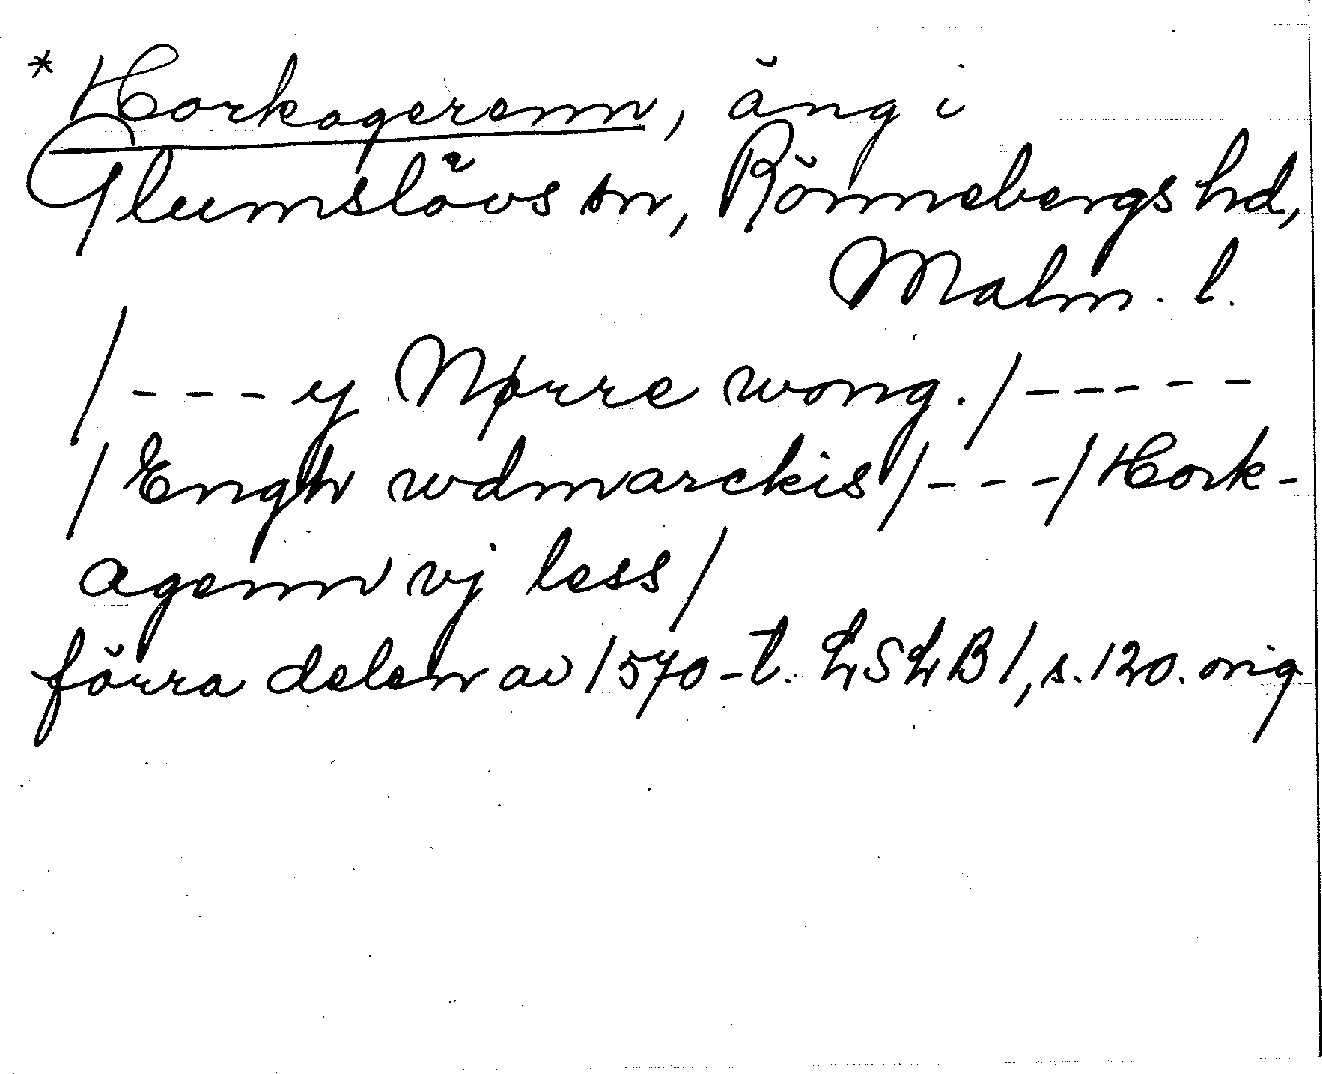 * Horkagerenn, äng i
Glumslövs sn, Rönnebergs hd,
Malm. l.
/---y Nørre wong./-----
/Engh wdmarckis/---/Hork-
agenn vj less/
förra delen av 1570-t. LSLB1, s.120. orig